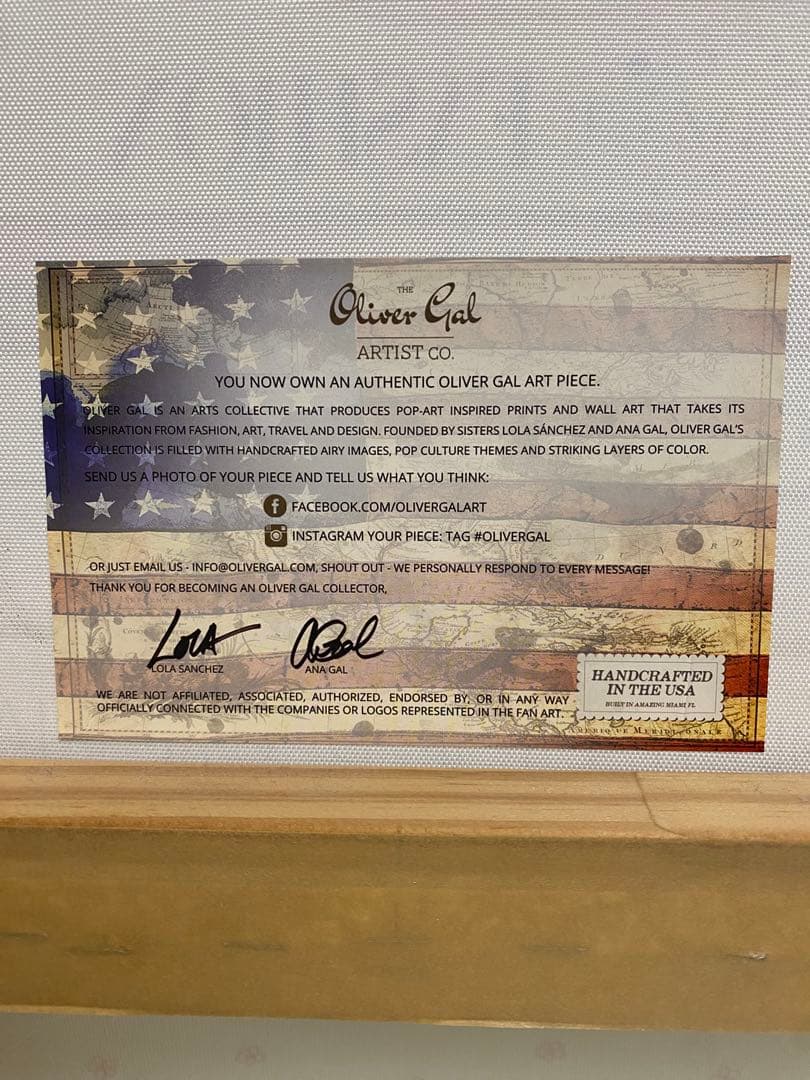 THE
Oliver Gal
ARTIST CO.
YOU NOW OWN AN AUTHENTIC OLIVER GAL ART PIECE.
OLIVER GAL IS AN ARTS COLLECTIVE THAT PRODUCES POP-ART INSPIRED PRINTS AND WALL ART THAT TAKES ITS
INSPIRATION FROM FASHION, ART, TRAVEL AND DESIGN. FOUNDED BY SISTERS LOLA SÁNCHEZ AND ANA GAL, OLIVER GAL'S
COLLECTION IS FILLED WITH HANDCRAFTED AIRY IMAGES, POP CULTURE THEMES AND STRIKING LAYERS OF COLOR.
SEND US A PHOTO OF YOUR PIECE AND TELL US WHAT YOU THINK:
FACEBOOK.COM/OLIVERGALART
INSTAGRAM YOUR PIECE: TAG #OLIVERGAL
OR JUST EMAIL US - INFO@OLIVERGAL.COM, SHOUT OUT - WE PERSONALLY RESPOND TO EVERY MESSAGE!
THANK YOU FOR BECOMING AN OLIVER GAL COLLECTOR,
LOLA
LOLA SANCHEZ
ANA GAL
HANDCRAFTED
IN THE USA
BUILT IN AMAZING MIAMI FL
WE ARE NOT AFFILIATED, ASSOCIATED, AUTHORIZED, ENDORSED BY, OR IN ANY WAY
OFFICIALLY CONNECTED WITH THE COMPANIES OR LOGOS REPRESENTED IN THE FAN ART.